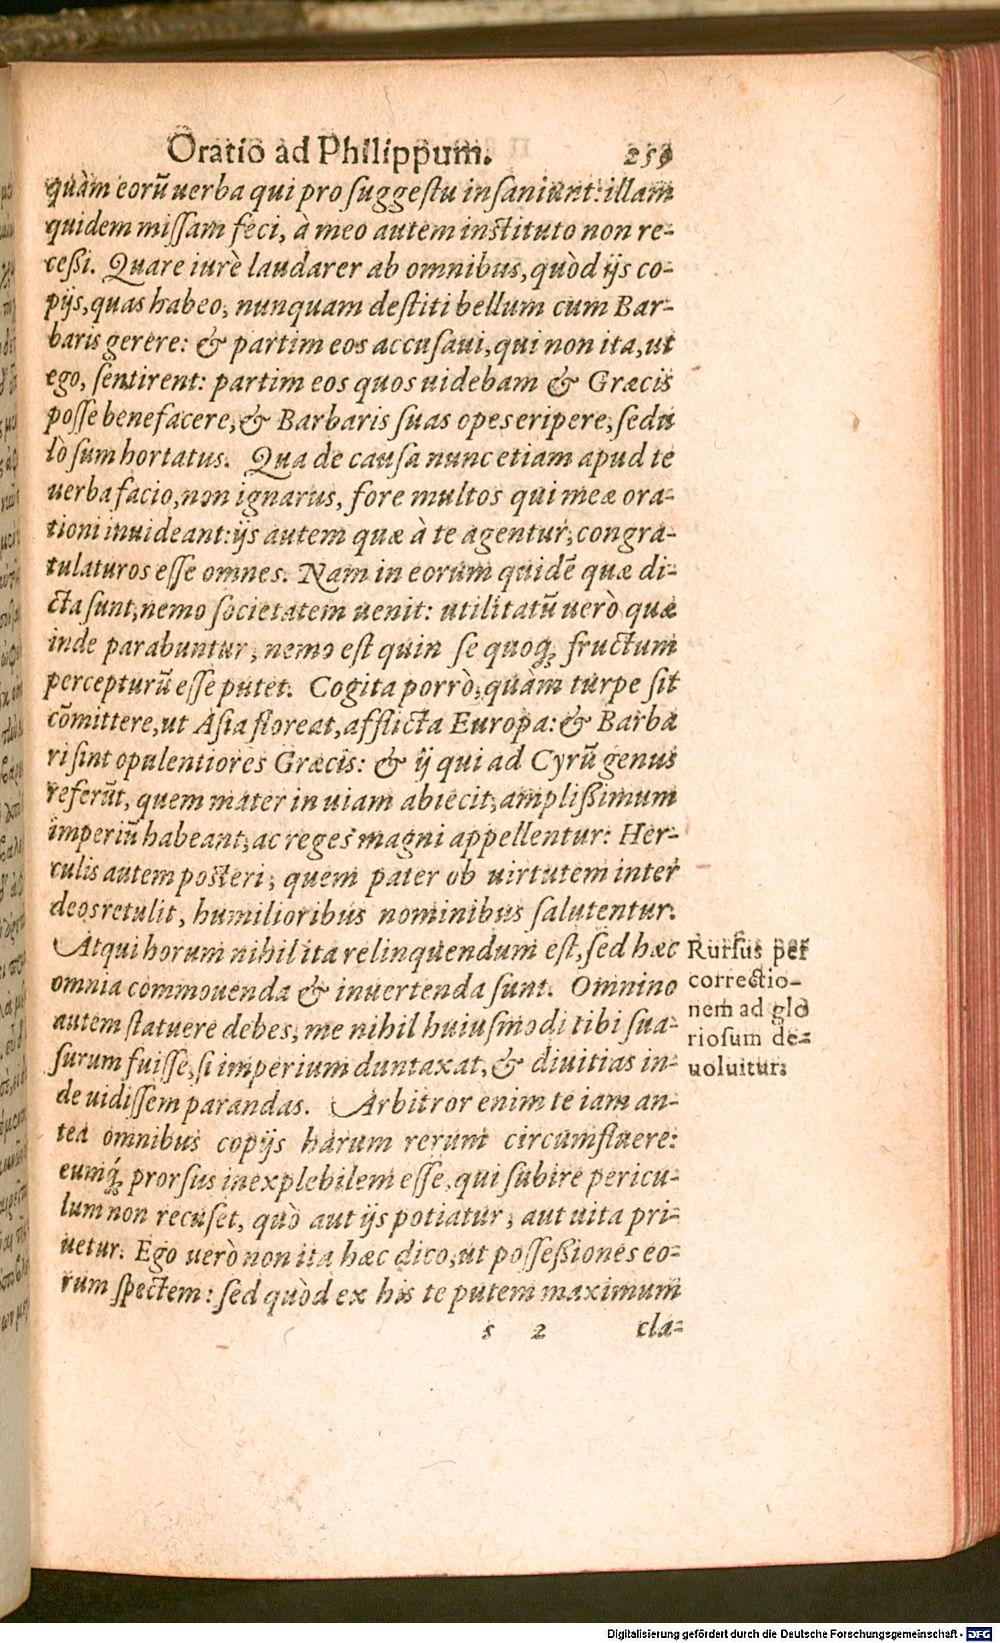 Oratio ad Philippum. 259
quàm eorũ uerba qui pro suggestu insaniunt: illam
quidem missam feci, à meo autem instituto non re-
cessi. Quare iurè laudarer ab omnibus, quòd ijs co-
pijs, quas habeo, nunquam destiti bellum cum Bar-
baris gerere: & partim eos accusaui, qui non ita, ut
ego, sentirent: partim eos quos uidebam & Græcis
posse benefacere, & Barbaris suas opes eripere, sedu
lò sum hortatus. Qua de causa nunc etiam apud te
uerba facio, non ignarus, fore multos qui meæ ora-
tioni inuideant: ijs autem quæ à te agentur, congra-
tulaturos esse omnes. Nam in eorum quidẽ quæ di-
cta sunt, nemo societatem uenit: utilitatũ uerò quæ
inde parabuntur, nemo est quin se quoq; fructum
percepturũ esse putet. Cogita porrò, quàm turpe sit
cõmittere, ut Asia floreat, afflicta Europa: & Barba
ri sint opulentiores Græcis: & ij qui ad Cyrũ genus
referũt, quem mater in uiam abiecit, amplissimum
imperiũ habeant, ac reges magni appellentur: Her-
culis autem posteri, quem pater ob uirtutem inter
deos retulit, humilioribus nominibus salutentur.
Atqui horum nihil ita relinquendum est, sed hæc
omnia commouenda & inuertenda sunt. Omnino
autem statuere debes, me nihil huiusmodi tibi sua-
surum fuisse, si imperium duntaxat, & diuitias in-
de uidissem parandas. Arbitror enim te iam an-
tea omnibus copijs harum rerum circumfluere:
eumq́; prorsus inexplebilem esse, qui subire pericu-
lum non recuset, quò aut ijs potiatur, aut uita pri-
uetur. Ego uerò non ita hæc dico, ut possessiones eo-
rum spectem: sed quòd ex his te putem maximum
s 2 cla-
Rursus per
correctio-
nem ad glo
riosum de-
uoluitur.
Digitalisierung gefördert durch die Deutsche Forschungsgemeinschaft - DFG